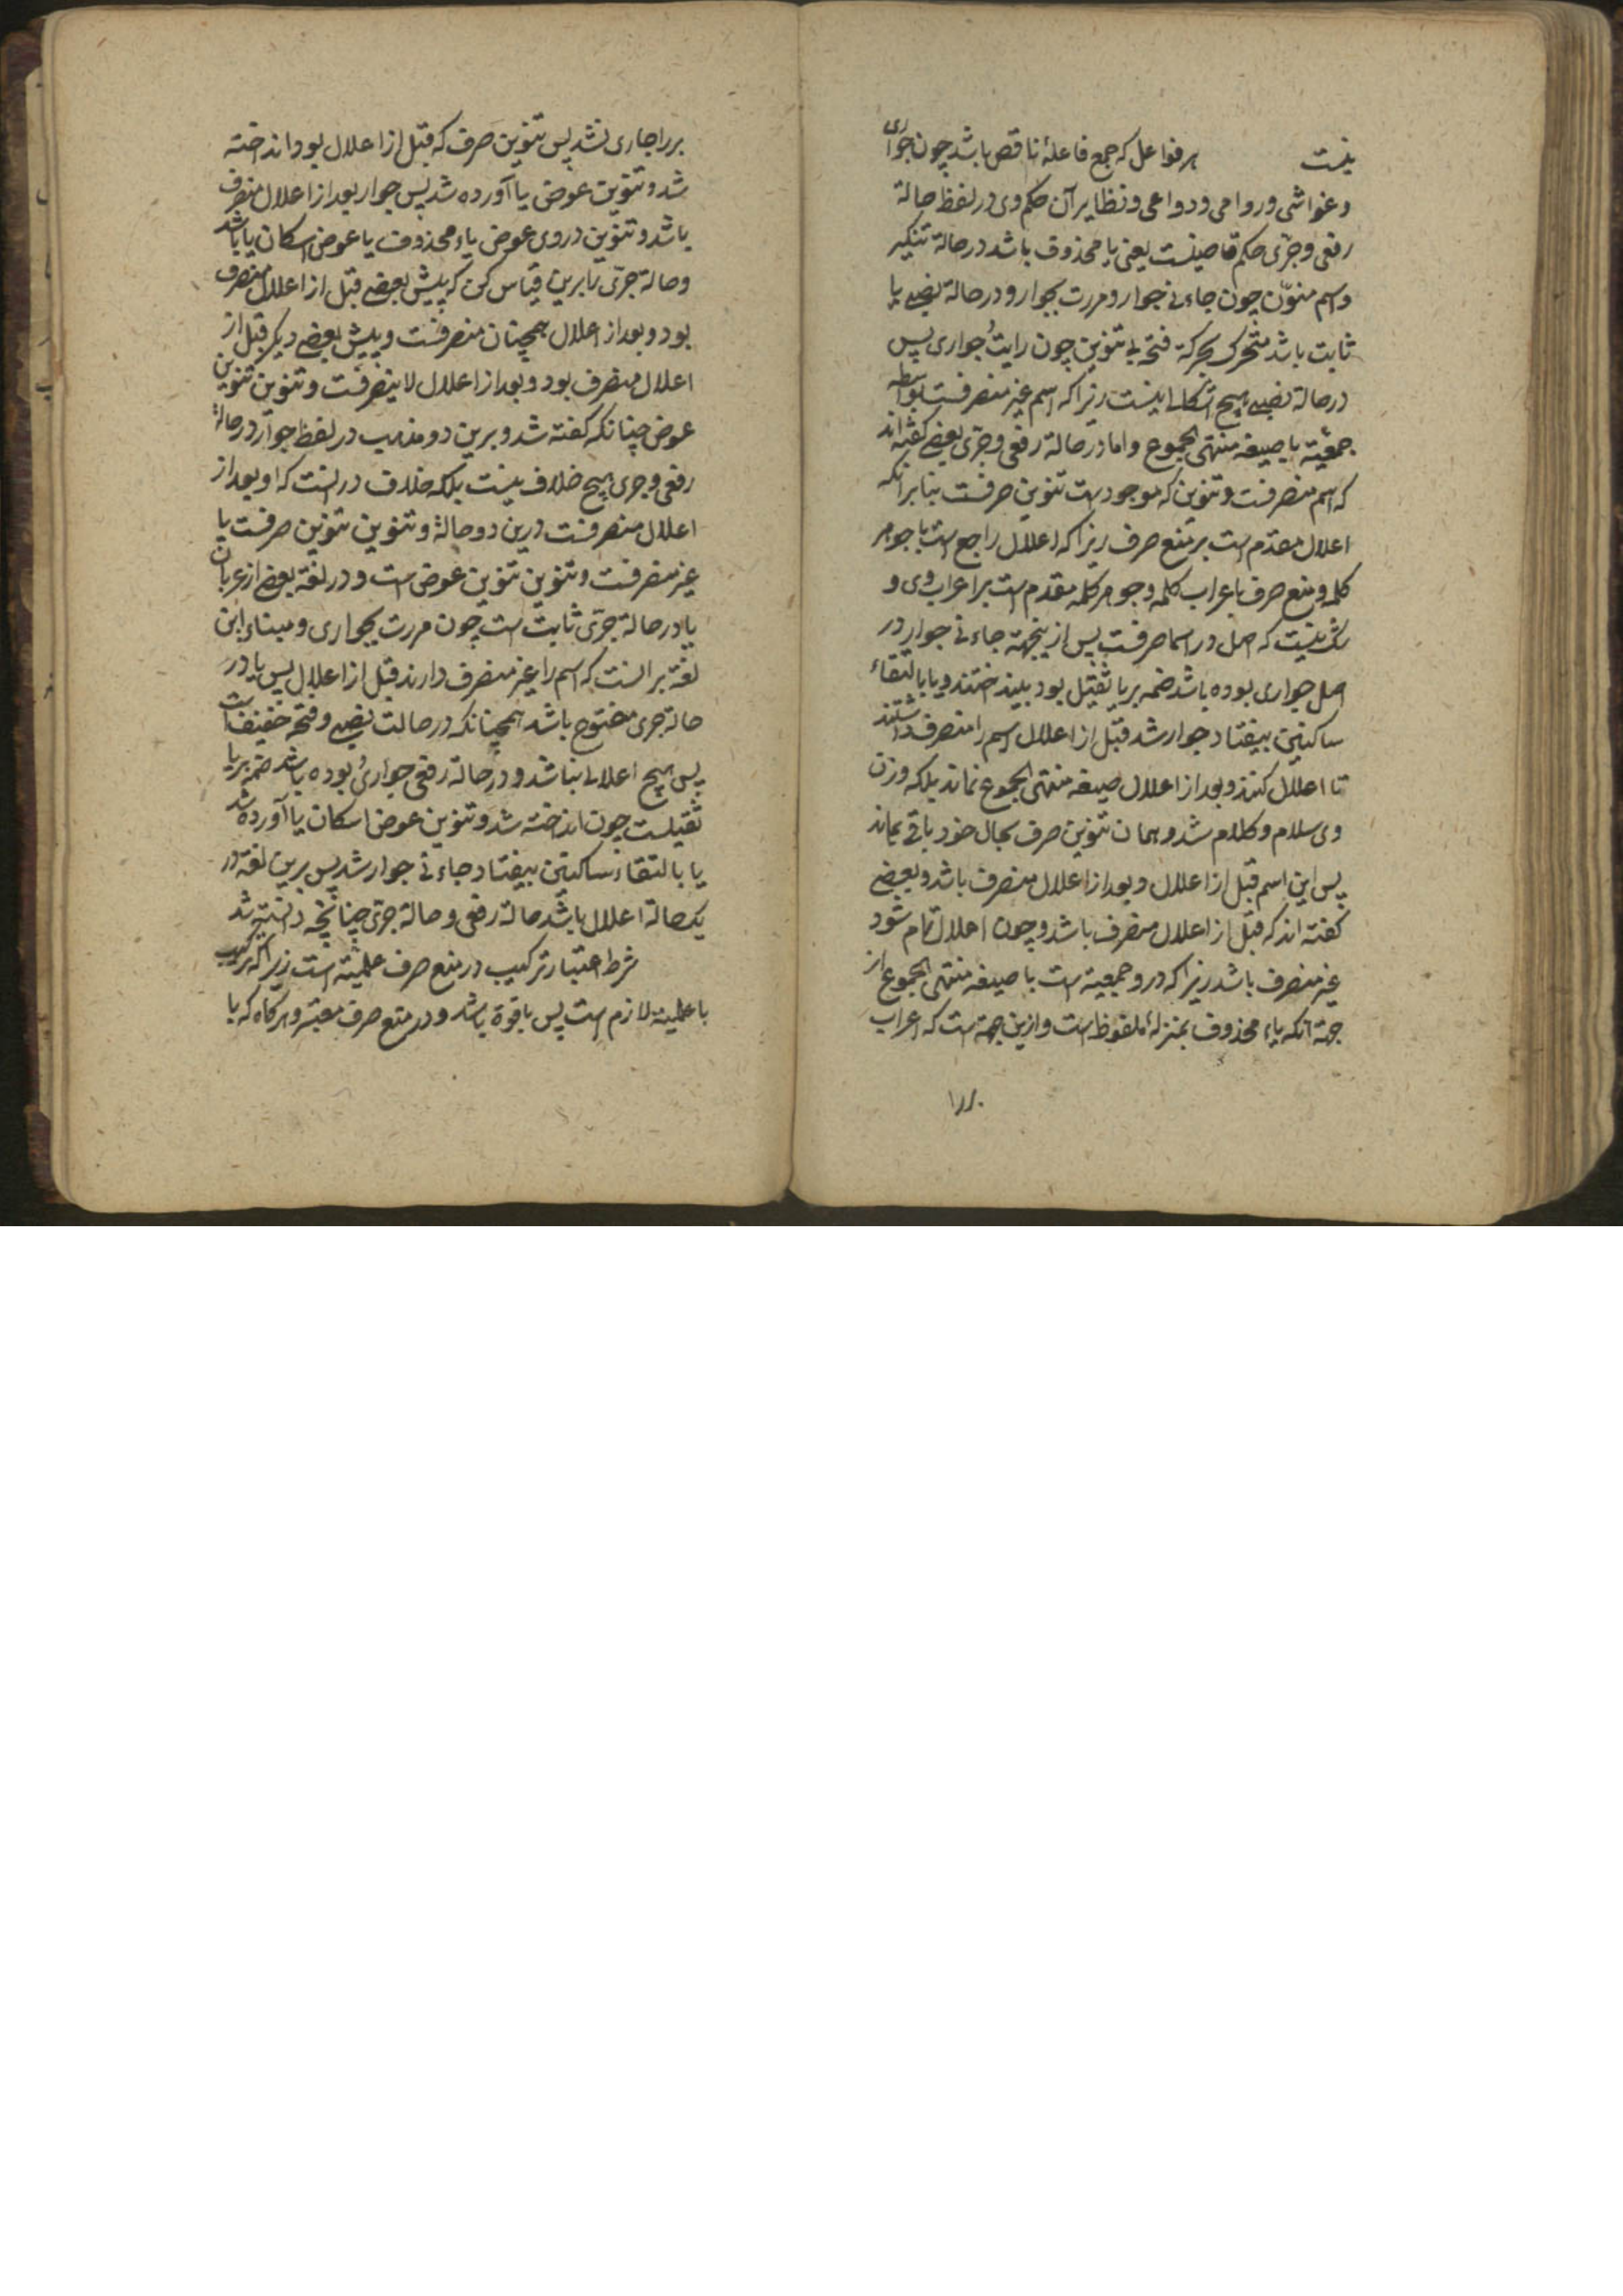 نیست هر فواعل که جمع فاعلهٔ ناقص باشد چون جواری
و غواشی و روامی و دواعی و نظایر آن حکم وی در لفظ حالة
رفعی و جرّی حکم قاضیست یعنی یاء محذوف باشد در حالة تنکیر
و اسم منوّن چون جاءنی جوار و مررت بجوار و در حالة نصبی یا
ثابت باشد متحرک بحرکة فتحه بی تنوین چون رایتُ جواری پس
در حالة نصبی هیچ اشکالی نیست زیرا که اسم غیر منصرفست بواسطه
جمعیّة با صیغه منتهی الجموع و اما در حالة رفعی و جرّی بعضی گفته‌اند
که اسم منصرفست و تنوین که موجود است تنوین صرفست بنابر آنکه
اعلال مقدّم است بر منع صرف زیرا که اعلال راجع است با جوهر
کلمه و منع صرف با عراب کلمه و جوهر کلمه مقدم است بر اعراب وی و
شک نیست که اصل در اسما صرفست پس ازینجهة جاءنی جوار در
اصل جواری بوده باشد ضمه بر یا ثقیل بود بینداختند و یا بالتقاء
ساکنین بیفتاد جوار شد قبل از اعلال اسم را منصرف داشتند
تا اعلال کنند و بعد از اعلال صیغه منتهی الجموع نماند بلکه وزن
وی سلام و کلام شد و همان تنوین صرف بحال خود باقی بماند
پس این اسم قبل از اعلال و بعد از اعلال منصرف باشد و بعضی
گفته‌اند که قبل از اعلال منصرف باشد و چون اعلال تمام شود
غیر منصرف باشد زیرا که درو جمعیة است با صیغه منتهی الجموع از
جهة آنکه یاء محذوف بمنزلهٔ ملفوظ است و ازین جهة است که اعراب
۱۸۰
بر را جاری نشد پس تنوین صرف که قبل از اعلال بود انداخته
شد و تنوین عوض یا آورده شد پس جوار بعد از اعلال منصرف
باشد و تنوین در وی عوض یاء محذوف یا عوض اسکان یا باشد
و حالة جرّی را برین قیاس کن که پیش بعضی قبل از اعلال منصرف
بود و بعد از اعلال همچنان منصرفست و پیش بعضی دیگر قبل از
اعلال منصرف بود و بعد از اعلال لاینصرفست و تنوین تنوین
عوض چنانکه گفته شد و برین دو مذهب در لفظ جوار در حالة
رفعی و جری هیچ خلاف نیست بلکه خلاف در آنست که او بعد از
اعلال منصرفست درین دو حالة و تنوین تنوین صرفست یا
غیر منصرفست و تنوین تنوین عوض است و در لغة بعضی از عربان
یا در حالة جرّی ثابت است چون مررت بجواری و مبناء این
لغة بر آنست که اسم را غیر منصرف دارند قبل از اعلال پس یا در
حالة جری مفتوح باشد همچنانکه در حالت نصبی و فتحه خفیف است
پس هیچ اعلالی نباشد و در حالة رفعی جواریُ بوده باشد ضمه بر یا
ثقیلست چون انداخته شد و تنوین عوض اسکان یا آورده شد
یا بالتقاء ساکنین بیفتاد جاءنی جوار شد پس برین لغة در
یکحالة اعلال باشد حالة رفعی و حالة جرّی چنانچه دانسته شد
شرط اعتبار ترکیب در منع صرف علمیّة است زیرا که ترکیب
با علمیة لازم است پس با قوة باشد و در منع صرف معتبر و هرگاه که با